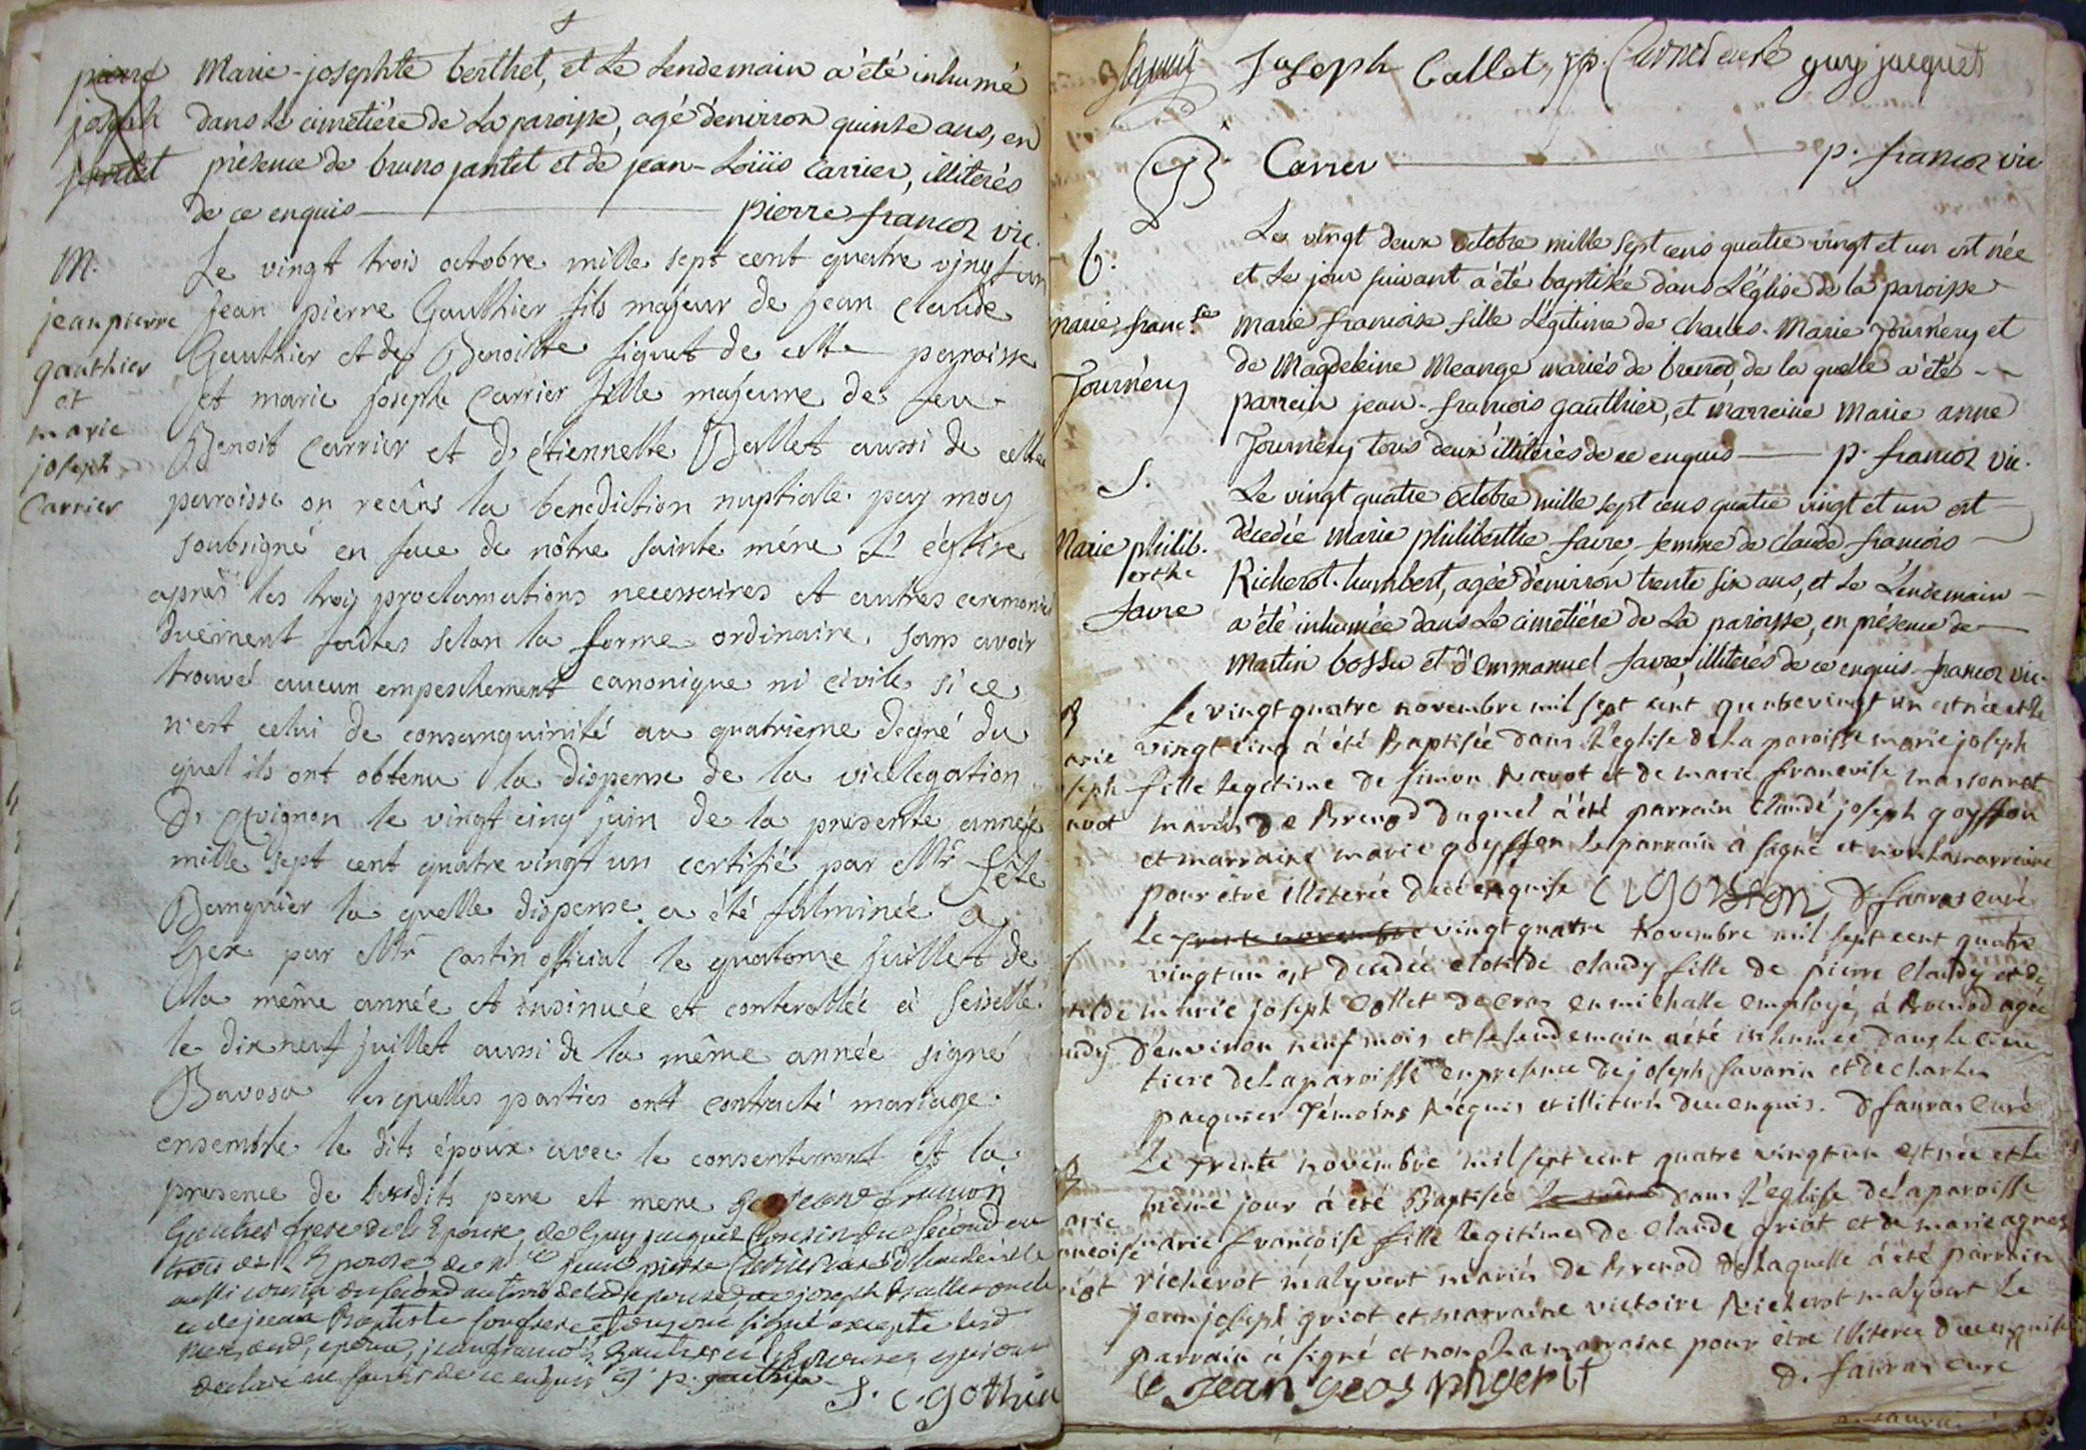 pierre
joseph
jantet
Marie-josephte berthet, et Le Lendemain a été inhumé
dans Le cimetière de La paroisse, agé d'environ quinse ans, en
présence de bruno jantet et de jean-Loüis Carrier, illiterés
de ce enquis pierre francoz vic.
M.
jean pierre
gauthier
et
marie
joseph
Carrier
Le vingt trois octobre mille sept cent quatre vingt un
jean pierre Gauthier fils majeur de jean claude
Gauthier et de Benoitte signet de cette paroisse
et marie joseph Carrier fille majeure de feu
Benoit Carrier et d'étiennette Ballet aussi de cette
paroisse on recûs la benediction nuptiale par moy
soubsigné en face de nôtre sainte mére L'église
apres les troy proclamations necessaires et autres ceremonies
duëment faites selon la forme ordinaire, sans avoir
trouvé aucun empeschement canonique ni civile si ce
n'est celui de consanguinité au quatrieme degré du
quel ils ont obtenu la dispense de la vicelegation
D'Avignon le vingt cinq juin de la presente année
mille sept cent quatre vingt un certifié par Mr
Banquier la quelle dispense a été fulminée a
Gex par Mr Castin official le quatorse juillet de
la même année et insinuée et conterollée à Seisselle
le dix neuf juillet aussi de la même année signé
Bavosa lesquelles parties ont contracté mariage
ensemble le dits époux avec le consentement et la
presence de les dits pere et mere jean francois
Gauthier frere de l'Epoux, de Guy jacquet Cousin du second au
trois de l'Epouse de jean pierre Carrier
aussi cousin du second au trois de lad epouse, de joseph Ballet oncle
et de jean Baptiste son frere signé excepté
mere, epoux, jean francois Gautier et l'Epouse, qui ont
declaré ne savoir de ce enquis j. p. gauthier
J. C. gothier
Joseph Callet, jp. Carrier curé guy jacquet
Carrier p. francoz vic
b.
marie franc.se
Journéry
Le vingt deux octobre mille sept cens quatre vingt et un est née
et Le jour suivant a été baptisée dans L'Église de la paroisse
marie francoise fille Légitime de Charles-Marie Journéry et
de Magdeleine Meange mariés de brenod, de la quelle a été
parrein jean-francois gauthier, et marreine Marie anne
Journéry tous deux illiterés de ce enquis p. francoz vic.
S.
Marie philib.
erthe
favre
Le vingt quatre octobre mille sept cens quatre vingt et un est
décedée marie philiberthe favre femme de claude francois
Richerot-humbert, agée d'environ trente six ans, et Le Lendemain
a été inhumée dans Le cimetière de La paroisse, en présence de
martin bossu et d'Emmanuel favre, illiterés de ce enquis francoz vic.
B
arie
seph
avot
Le vingt quatre novembre mil sept cent quatre vingt un est née et le
vingt cinq a été Baptisée dans L'eglise de La paroisse marie joseph
fille legitime de simon Navot et de marie francoise massonnet
mariés de Brenod duquel à été parrain Claude joseph goyffon
et marraine marie goyffon le parrain à signé et non la marraine
pour être illiterée de ce enquise C i goiffon D favras curé
Le trente novembre vingt quatre Novembre mil sept cent quatre
vingt un est decedée clotilde claudy fille de pierre Claudy et de
tilde
udy
marie joseph Collet de Cras en michaille employé, à Brenod agée
d'environ neuf mois et le lendemain a été inhumée dans le cime
tiere de La paroisse en presence de joseph Savarin et de Charles
pacquier Témoins Réquis et illiterés de ce enquis. D favras Curé
B
arie
ancoise
riot
Le Trente novembre mil sept cent quatre vingt un est née et le
même jour à été Baptisée la même dans L'eglise de La paroisse
marie francoise fille legitime de Claude griot et de marie agnes
richerot malyvert mariés de Brenod de laquelle à été parrain
jean joseph griot et marraine victoire Richerot malyvert Le
parrain à signé et non La marraine pour être illiterée de ce enquise
D. favras curé